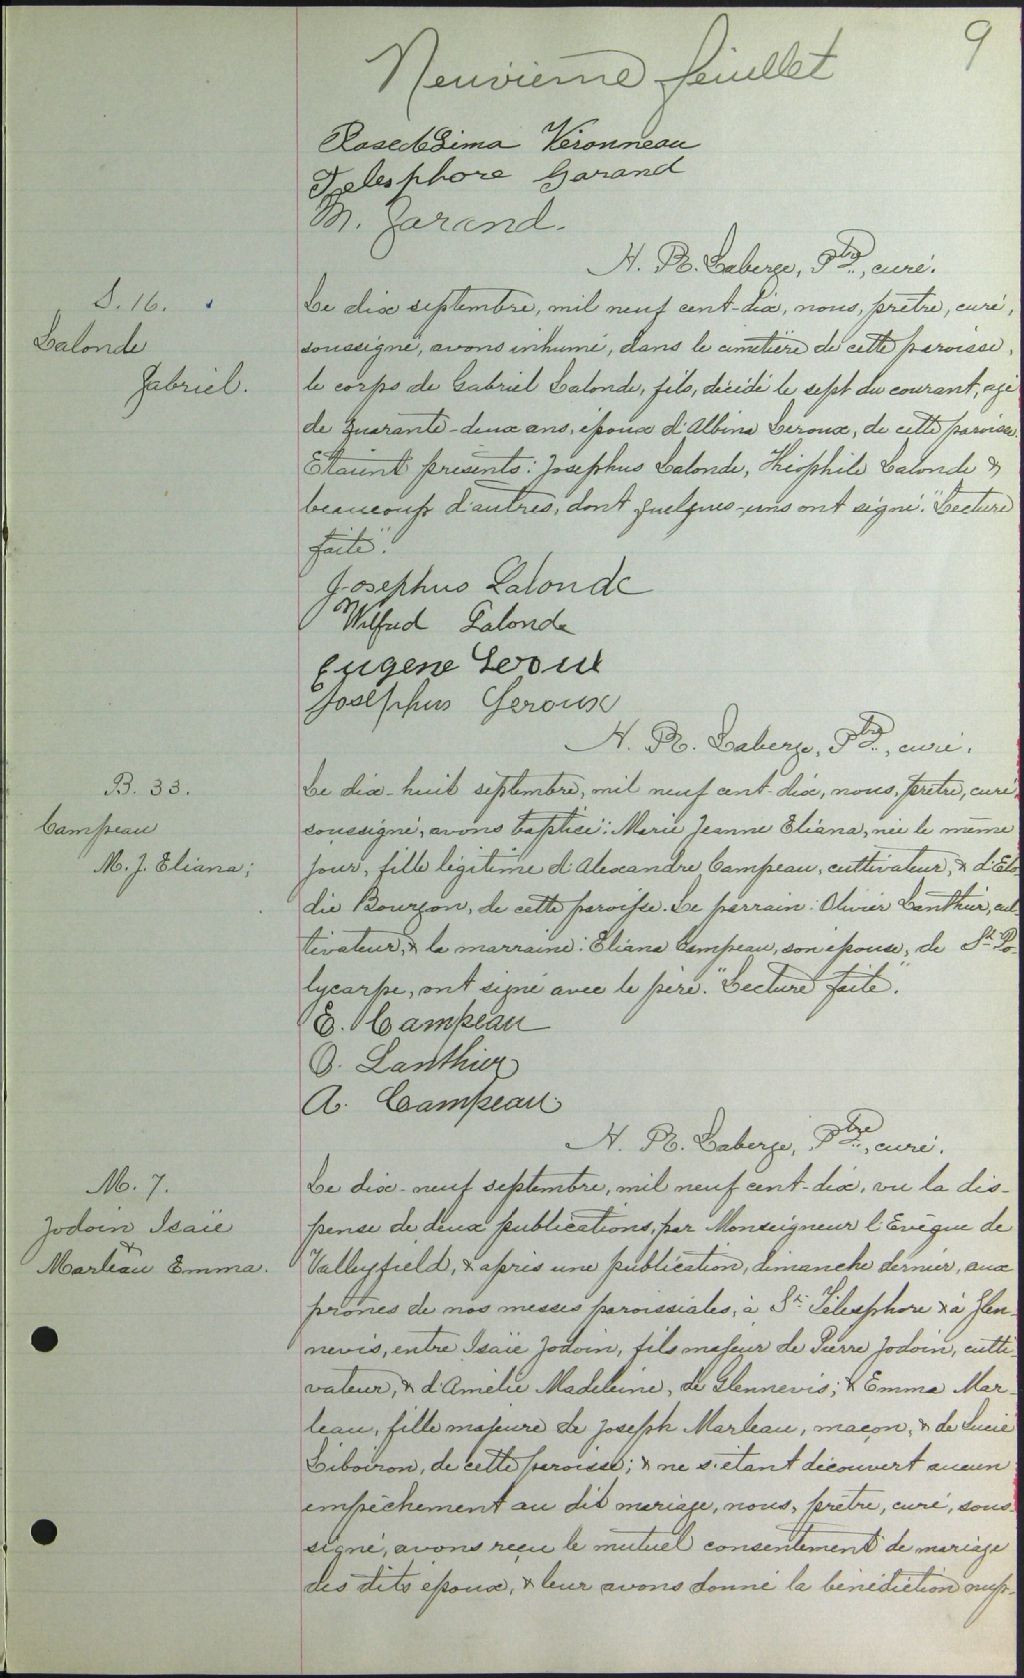 9
Neuvième feuillet
Rose de Lima Véronneau
Télesphore Garand
M. Garand.
H. R. Laberge, Ptre, curé.
S. 16.
Lalonde
Gabriel.
Le dix septembre, mil neuf cent-dix, nous, prêtre, curé,
soussigné, avons inhumé, dans le cimetière de cette paroisse,
le corps de Gabriel Lalonde, fils, décédé le sept du courant, agé
de quarante-deux ans, époux d'Albina Leroux, de cette paroisse.
Etaient présents: Josephus Lalonde, Théophile Lalonde &
beaucoup d'autres, dont quelques-uns ont signé. "Lecture
faite".
Josephus Lalonde
Wilfrid Lalonde
Eugene Leroux
Josephus Leroux
H. R. Laberge, Ptre, curé.
B. 33.
Campeau
M. J. Eliana;
Le dix-huit septembre, mil neuf cent-dix, nous, prêtre, curé
soussigné, avons baptisé: Marie Jeanne Eliana, née le même
jour, fille légitime d'Alexandre Campeau, cultivateur, & d'Elo-
die Bourgon, de cette paroisse. Le parrain: Olivier Lanthier, cul-
tivateur, & la marraine: Eliana Campeau, son épouse, de St. Po-
lycarpe, ont signé avec le père. "Lecture faite".
E. Campeau
O. Lanthier
A. Campeau.
H. R. Laberge, Ptre, curé.
M. 7.
Jodoin Isaïe
&
Marleau Emma.
Le dix-neuf septembre, mil neuf cent-dix, vu la dis-
pense de deux publications, par Monseigneur l'Evêque de
Valleyfield, & après une publication, dimanche dernier, aux
prônes de nos messes paroissiales, à St. Télesphore & à Glen-
nevis, entre Isaïe Jodoin, fils majeur de Pierre Jodoin, culti-
vateur, & d'Amélie Madeleine, de Glennevis; & Emma Mar-
leau, fille majeure de Joseph Marleau, maçon, & de Lucie
Liboiron, de cette paroisse; & ne s'étant découvert aucun
empêchement au dit mariage, nous, prêtre, curé, sous-
signé, avons reçu le mutuel consentement de mariage
des dits époux, & leur avons donné la bénédiction nup-